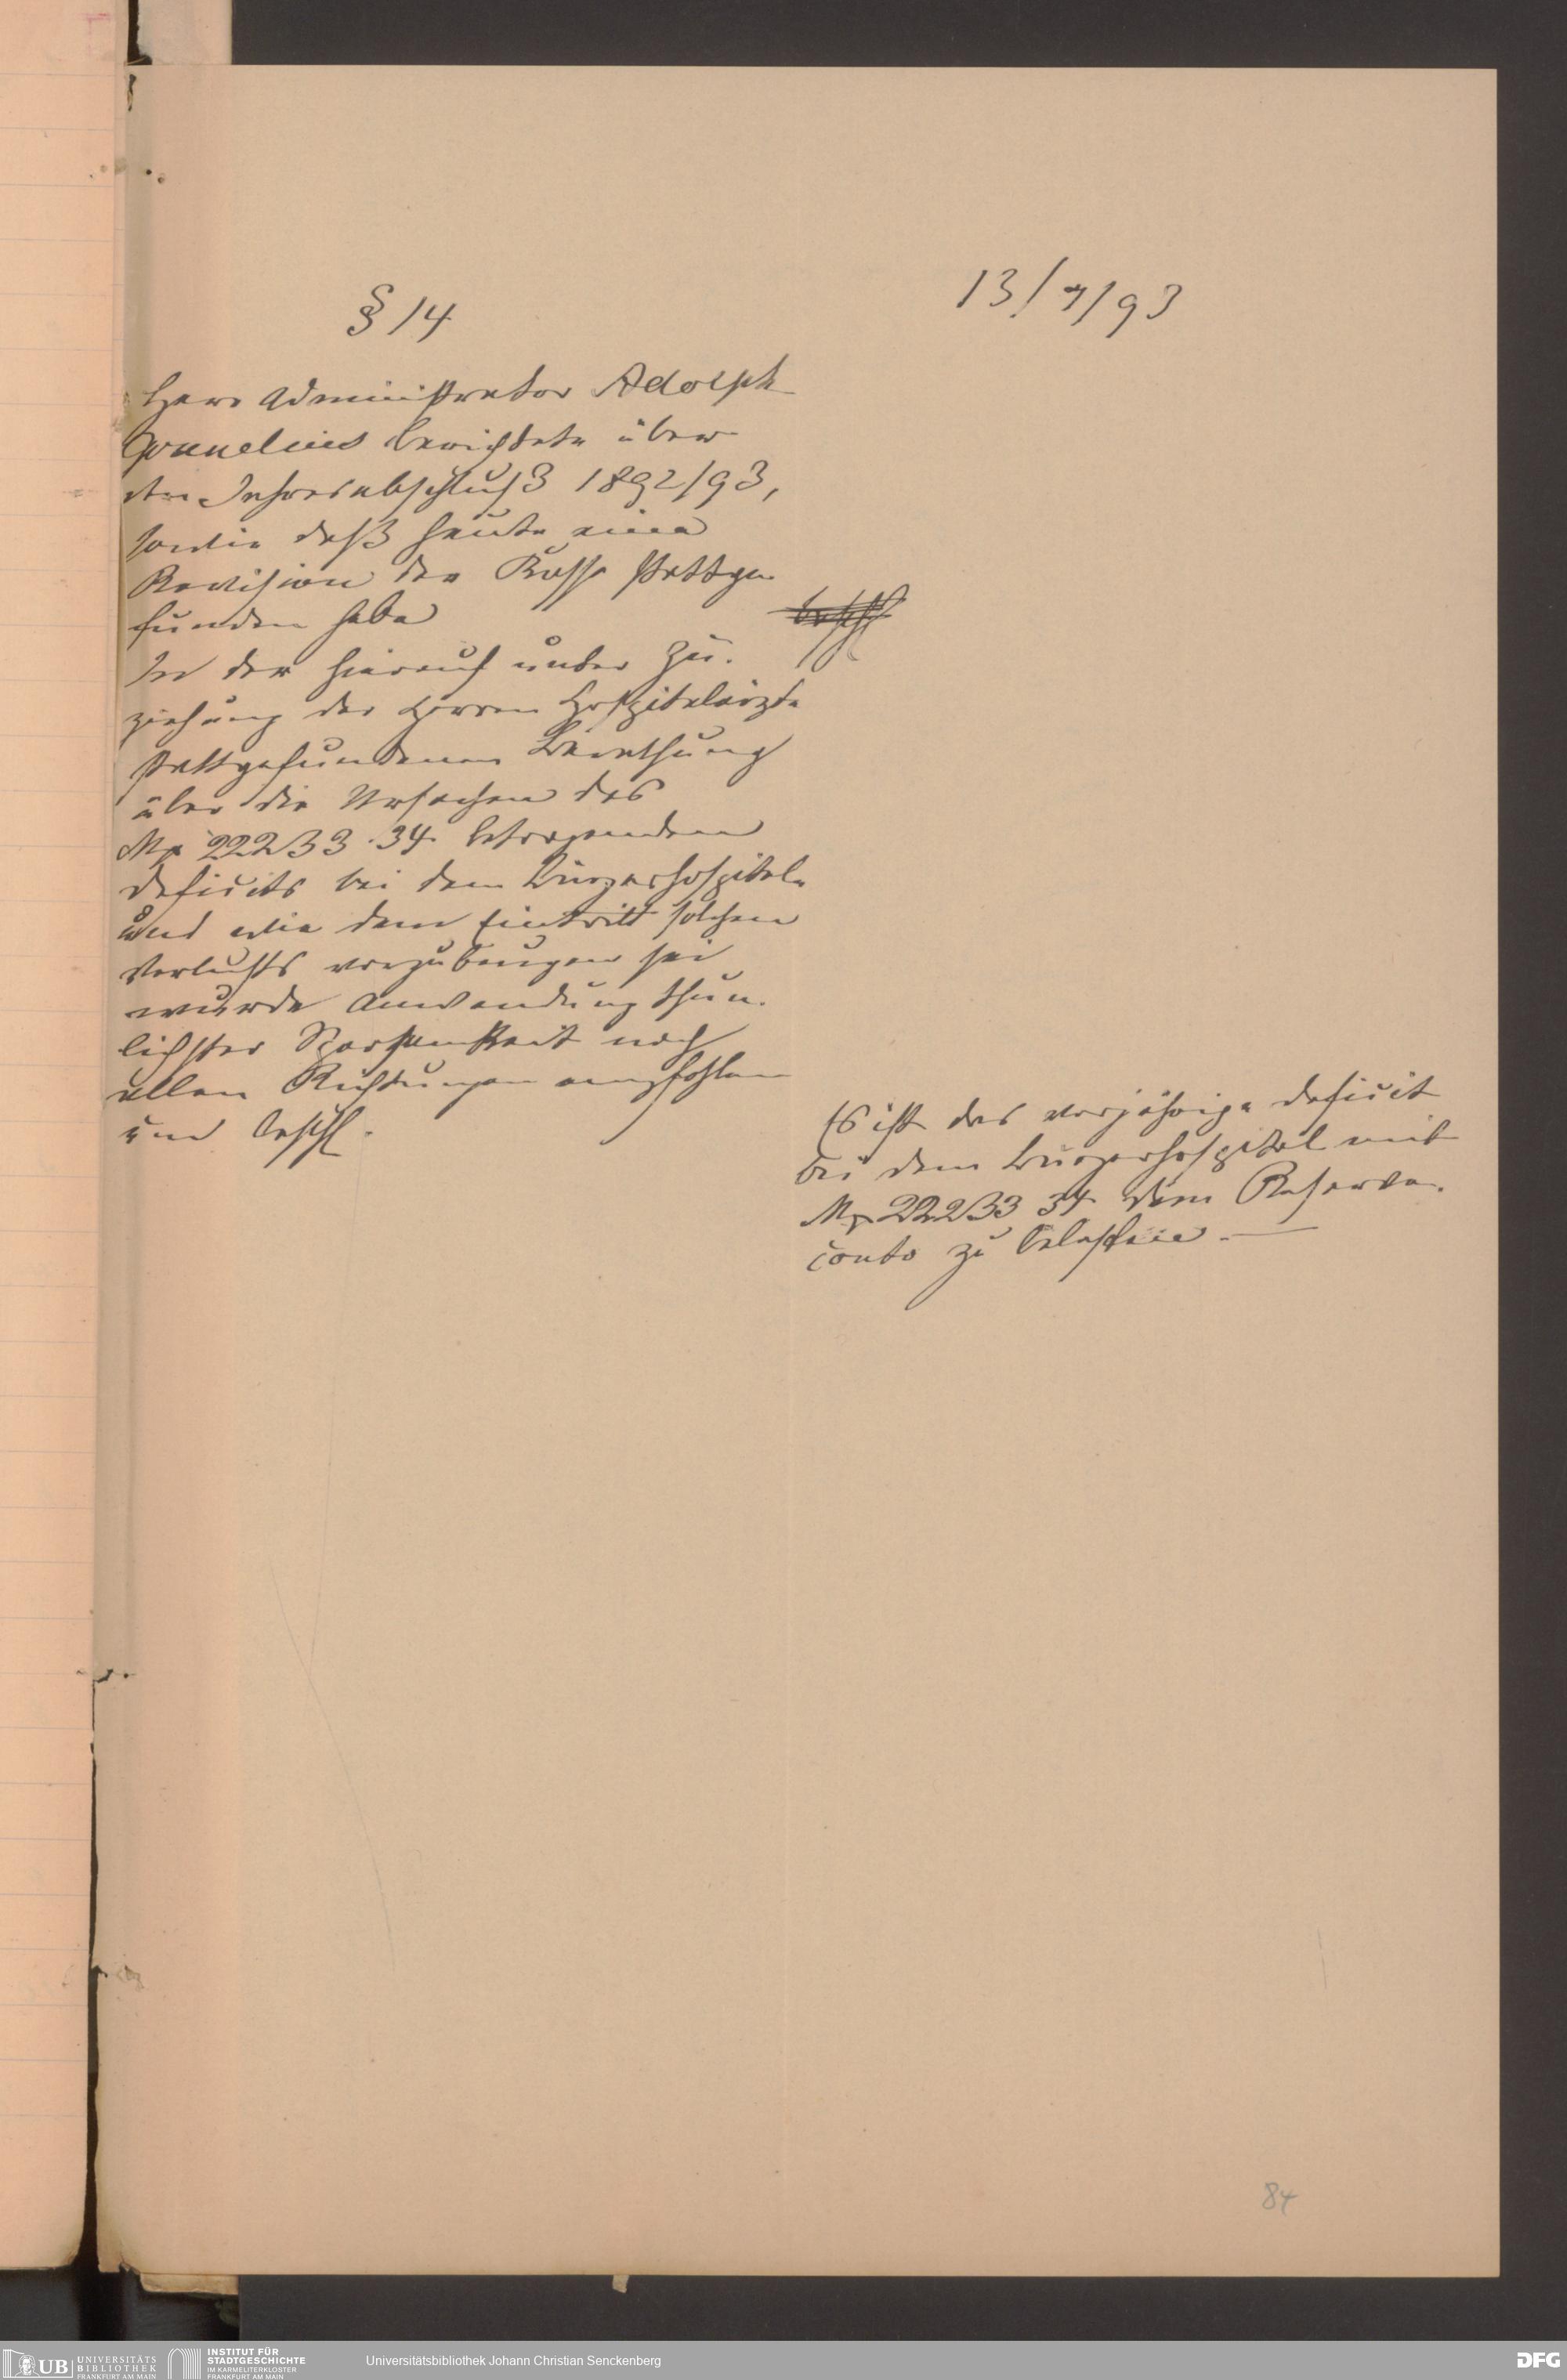 13/7/93
§ 14
Herr Administrator Adolph
Gonnelius berichtete über
den Jahresabschluß 1892/93,
sowie daß heute eine
Revision der Kasse stattge
funden habe
beschl
In der hierauf unter Zu.
ziehung der Herren Hospitalärzte
stattgefundenen Berathung
über die Ursachen des
M 22233.34 betragenden
Deficits bei dem Bürgerhospitale
und wie dem Eintritt solchen
Verlusts vorzubeugen sei
wurde Anwendung thun.
lichster Sparsamkeit nach
allen Richtungen empfohlen
und beschl.
Es ist das vorjährige Deficit
bei dem Bürgerhospital mit
M 22233 34 dem Reserve.
conto zu belasten.—
84
UB UNIVERSITÄTS
BIBLIOTHEK
FRANKFURT AM MAIN
INSTITUT FÜR
STADTGESCHICHTE
IM KARMELITERKLOSTER
FRANKFURT AM MAIN
Universitätsbibliothek Johann Christian Senckenberg
DFG